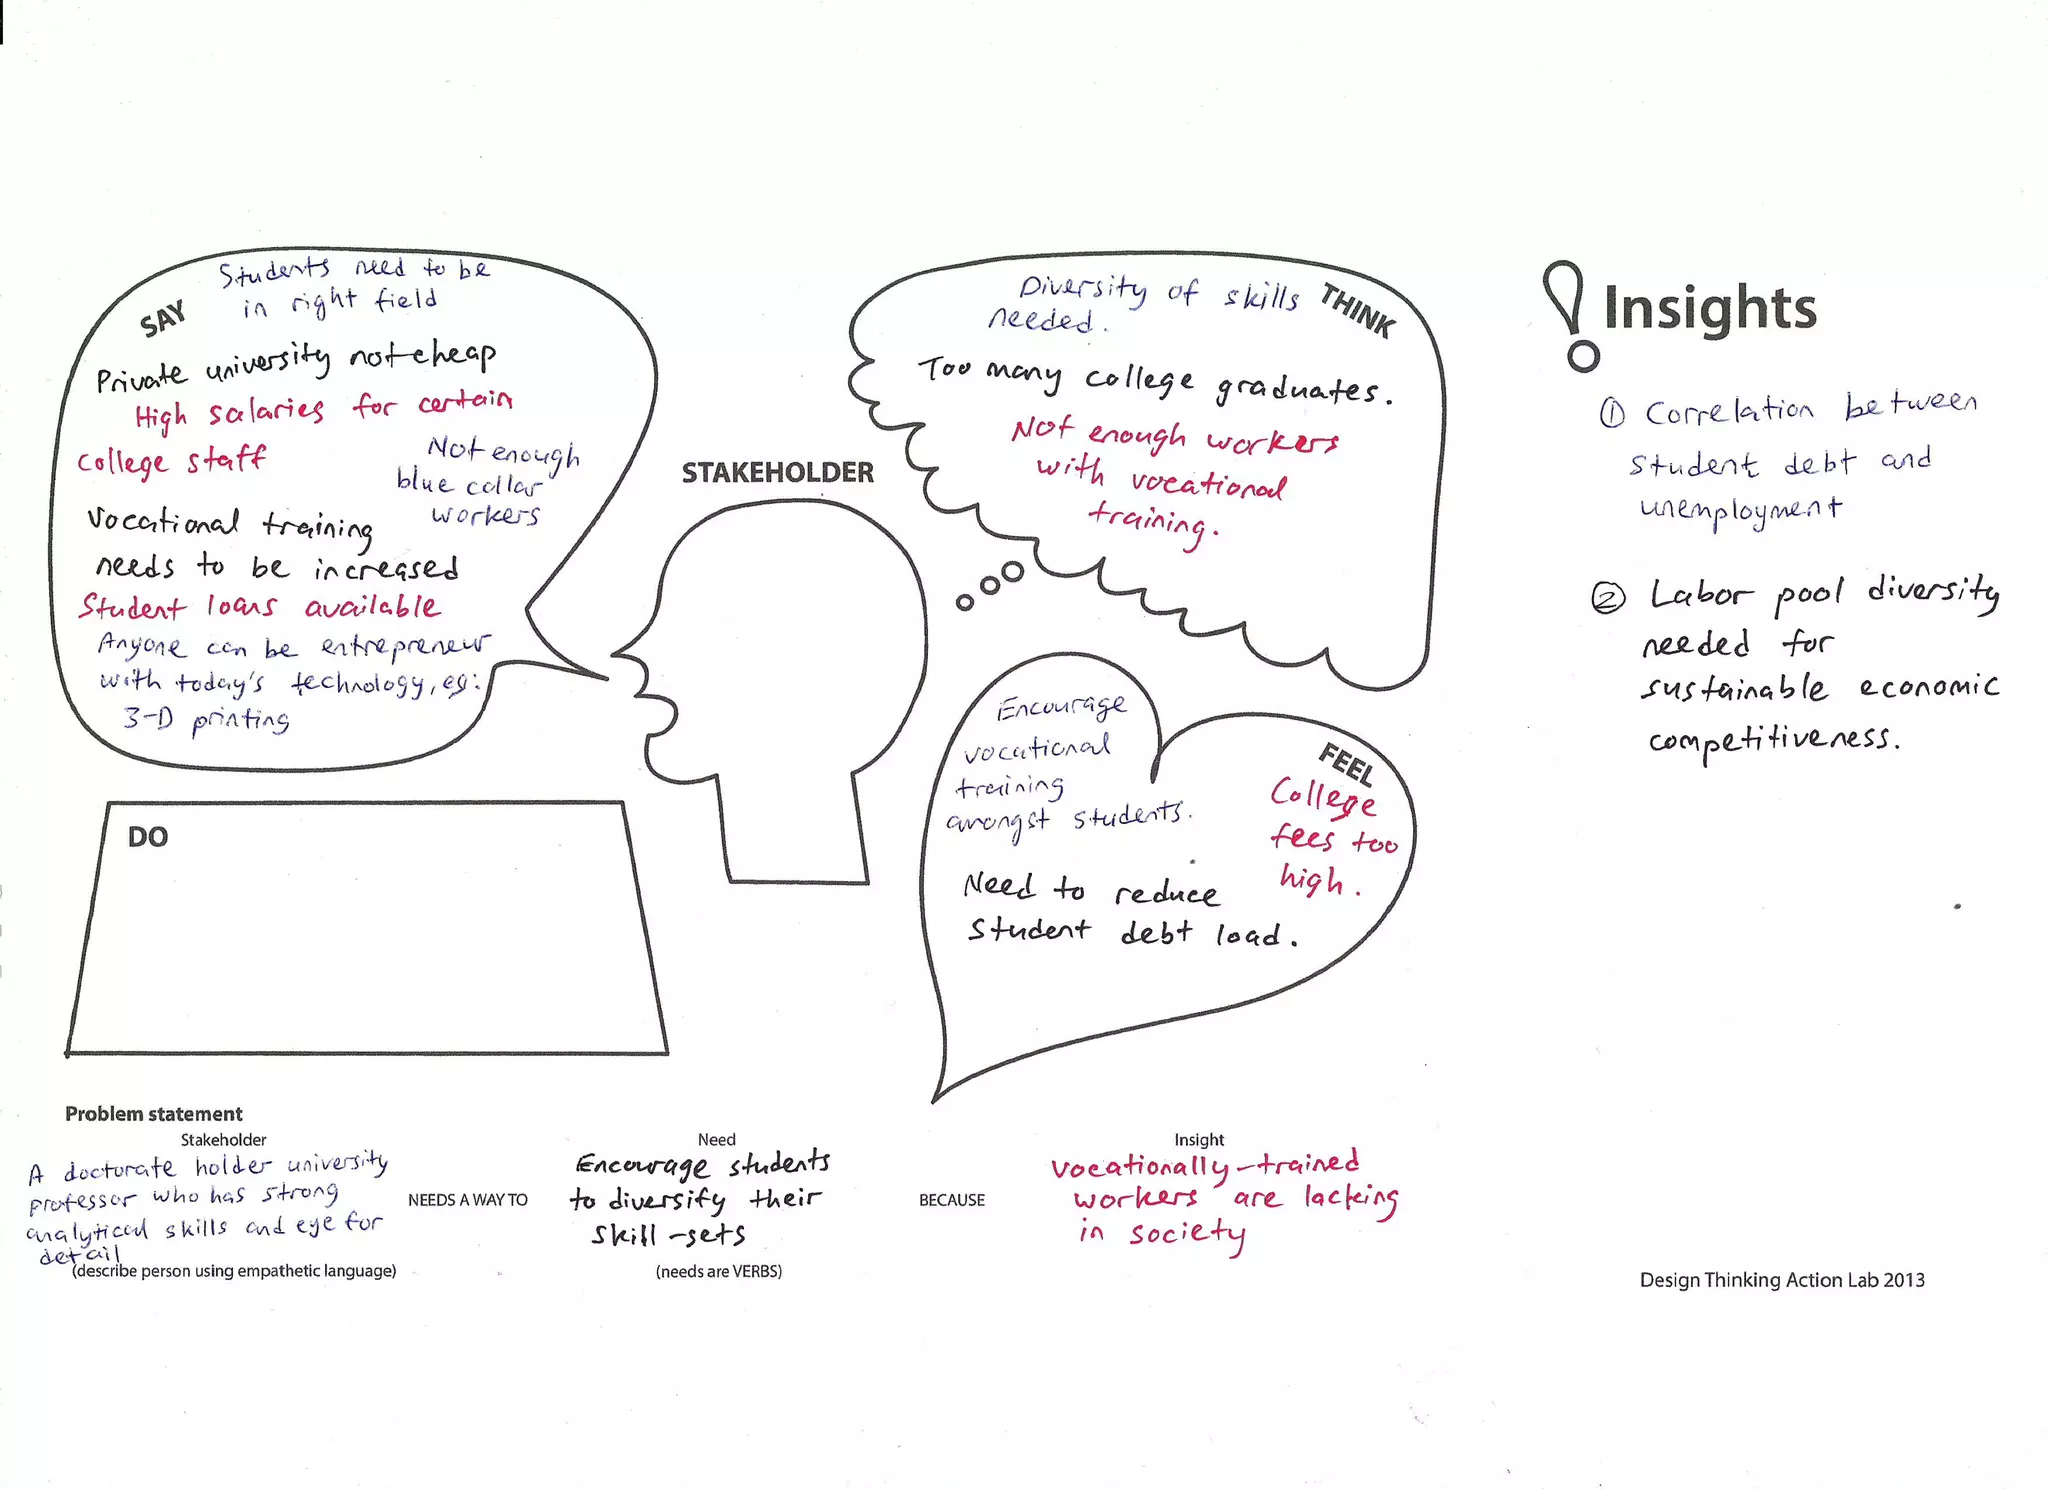 SAY
Students need to be
in right field
Private university not cheap
High salaries for certain
college staff
Not enough
blue collar
workers
Vocational training
needs to be increased
Student loans available
Anyone can be entrepreneur
with today's technology, eg:
3-D printing
STAKEHOLDER
THINK
Diversity of skills
needed.
Too many college graduates.
Not enough workers
with vocational
training.
DO
FEEL
Encourage
vocational
training
amongst students.
College
fees too
high.
Need to reduce
student debt load.
Insights
① Correlation between
student debt and
unemployment
② Labor pool diversity
needed for
sustainable economic
competitiveness.
Problem statement
Stakeholder
A doctorate holder university
professor who has strong
analytical skills and eye for
detail
(describe person using empathetic language)
NEEDS A WAY TO
Need
Encourage students
to diversify their
skill-sets
(needs are VERBS)
BECAUSE
Insight
Vocationally-trained
workers are lacking
in society
Design Thinking Action Lab 2013